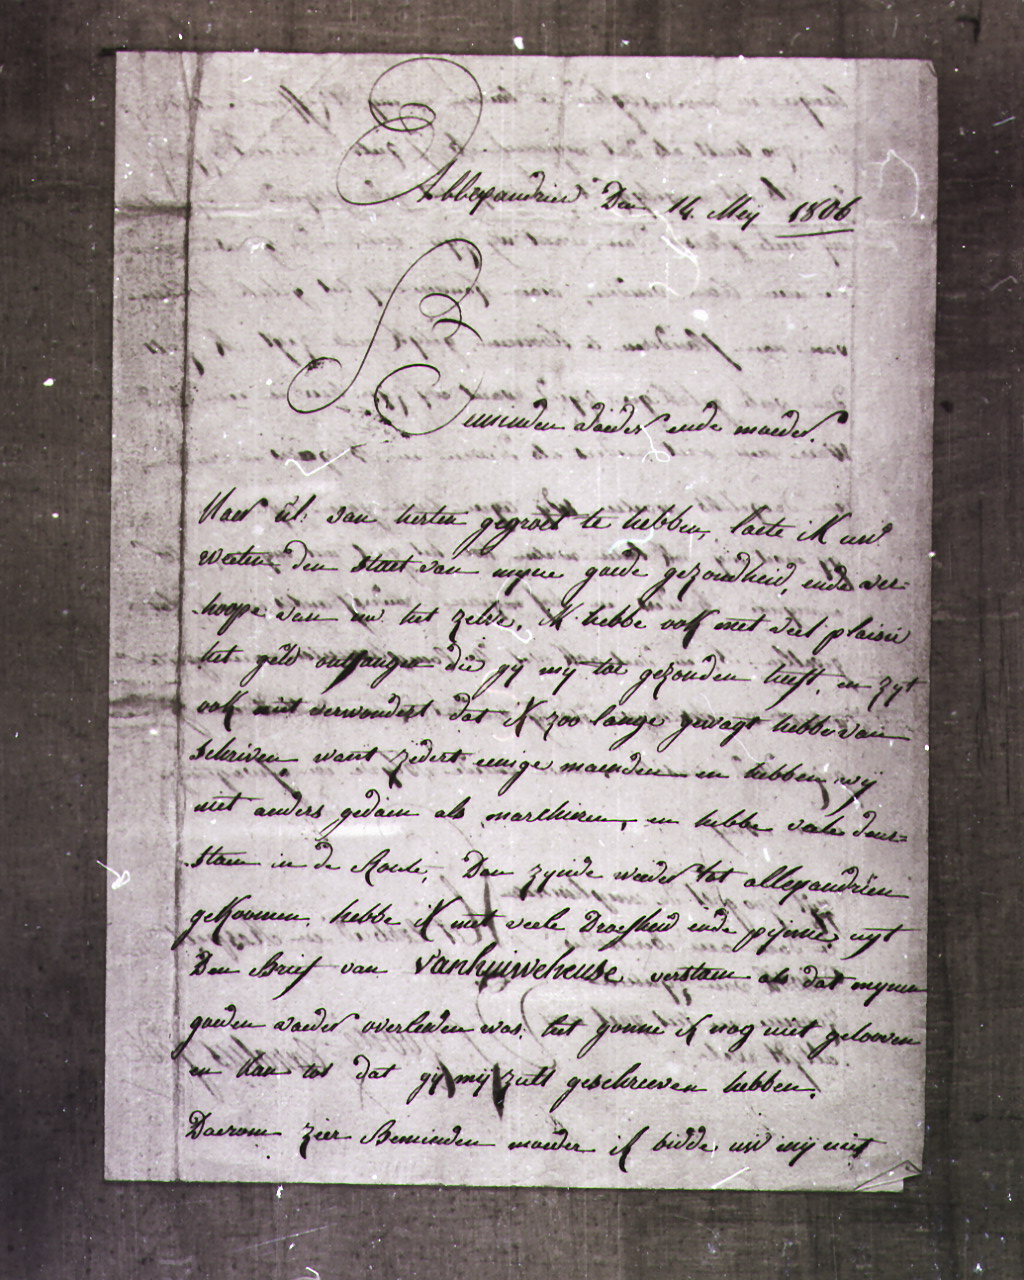 Allexandrien Den 14 Meij 1806
Beminden vaeder ende moeder
Naer ul: van herten gegroet te hebben, laete ik uw
weeten den staet van myne goede gezondheid, ende ver-
hoope van uw het zelve, ik hebbe ook met veel plaisir
het geld ontfangen die gy my toe gezonden heeft, en zyt
ook niet verwondert dat ik zoo lange gewagt hebbe van
schriven want zedert eenige maenden en hebben wij
niet anders gedaen als marchieren, en hebbe veele deur-
staen in de Route, Dan zynde weeder tot allexandrien
gekoomen, hebbe ik met veele Droefheid ende pijnne uyt
Den Brief van vanhuiweheuse verstaen als dat mynen
goeden vaeder overleeden was, het gonne ik nog niet gelooven
en kan tot dat gy mij zult geschreeven hebben.
Daerom zeer Beminden moeder ik bidde uw mij niet